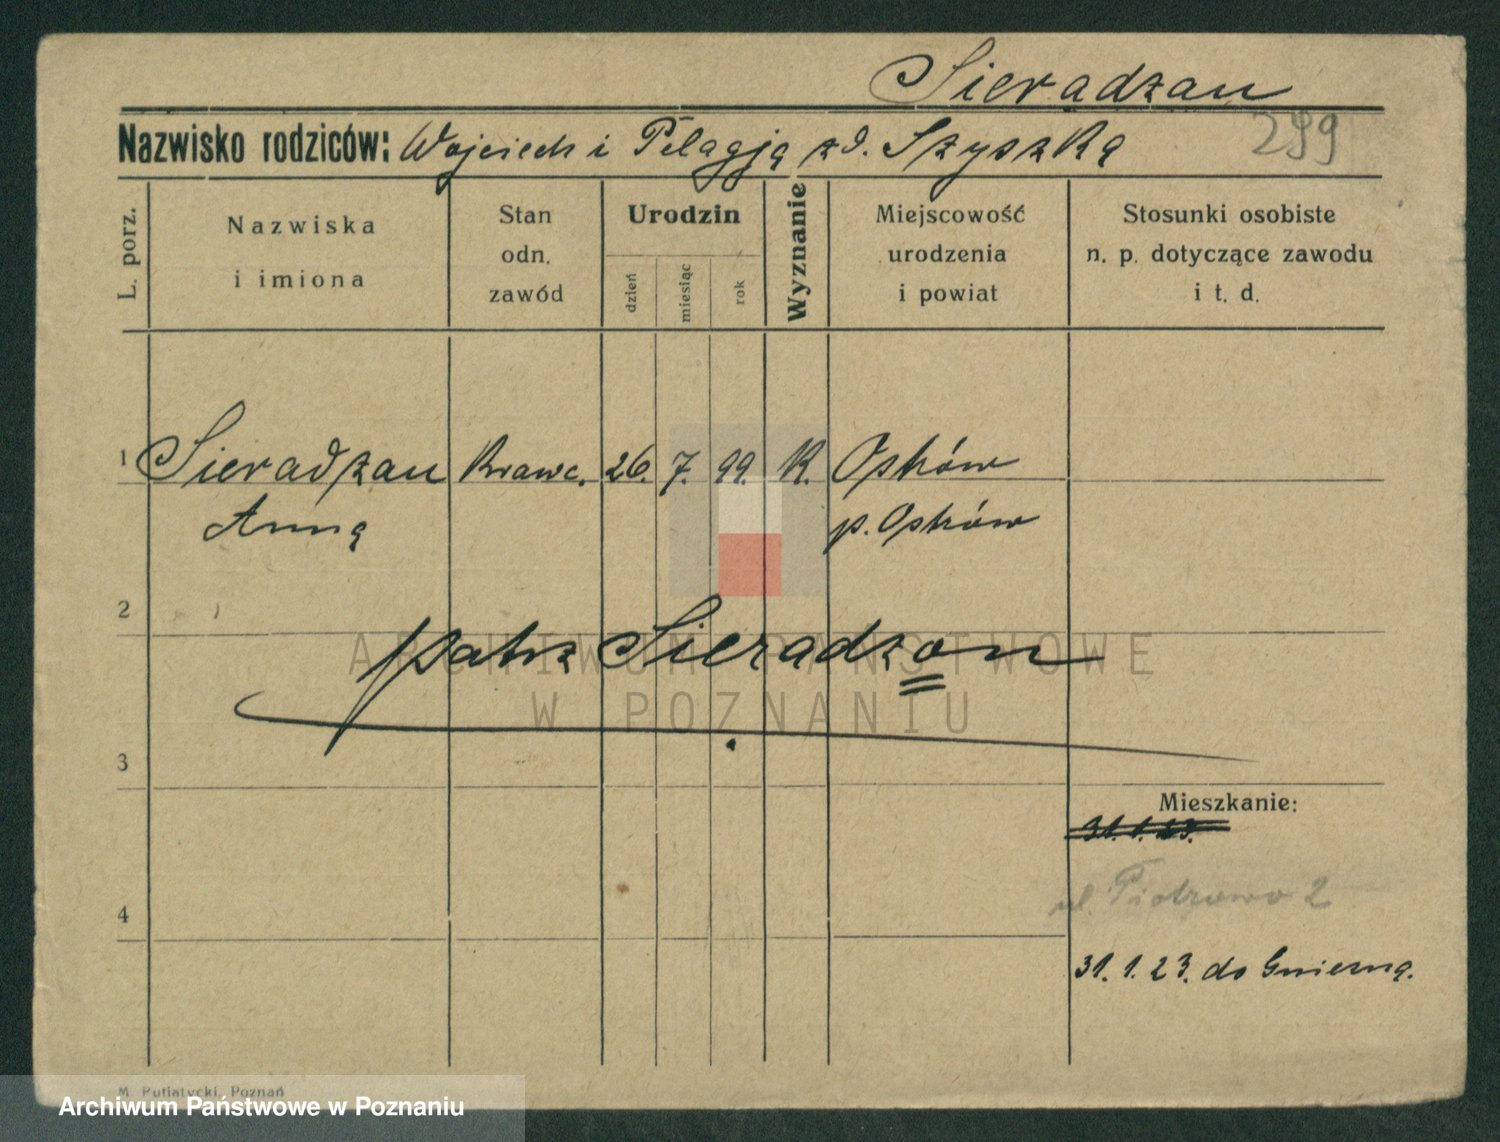 Sieradzan
Nazwisko rodziców: Wojciech i Pelagja zd. Szyszka
299
L. porz.
Nazwiska
i imiona
Stan
odn.
zawód
Urodzin
dzień
miesiąc
rok
Wyznanie
Miejscowość
urodzenia
i powiat
Stosunki osobiste
n. p. dotyczące zawodu
i t. d.
1 Sieradzan Krawc. 26. 7. 99. K. Ostrów
Anna p. Ostrów
2
patrz Sieradzon
ARCHIWUM PAŃSTWOWE
W POZNANIU
3
Mieszkanie:
31.1.23.
ul. Piotrowo 2
4
31. 1. 23. do Gniezna.
M. Putiatycki, Poznań
Archiwum Państwowe w Poznaniu